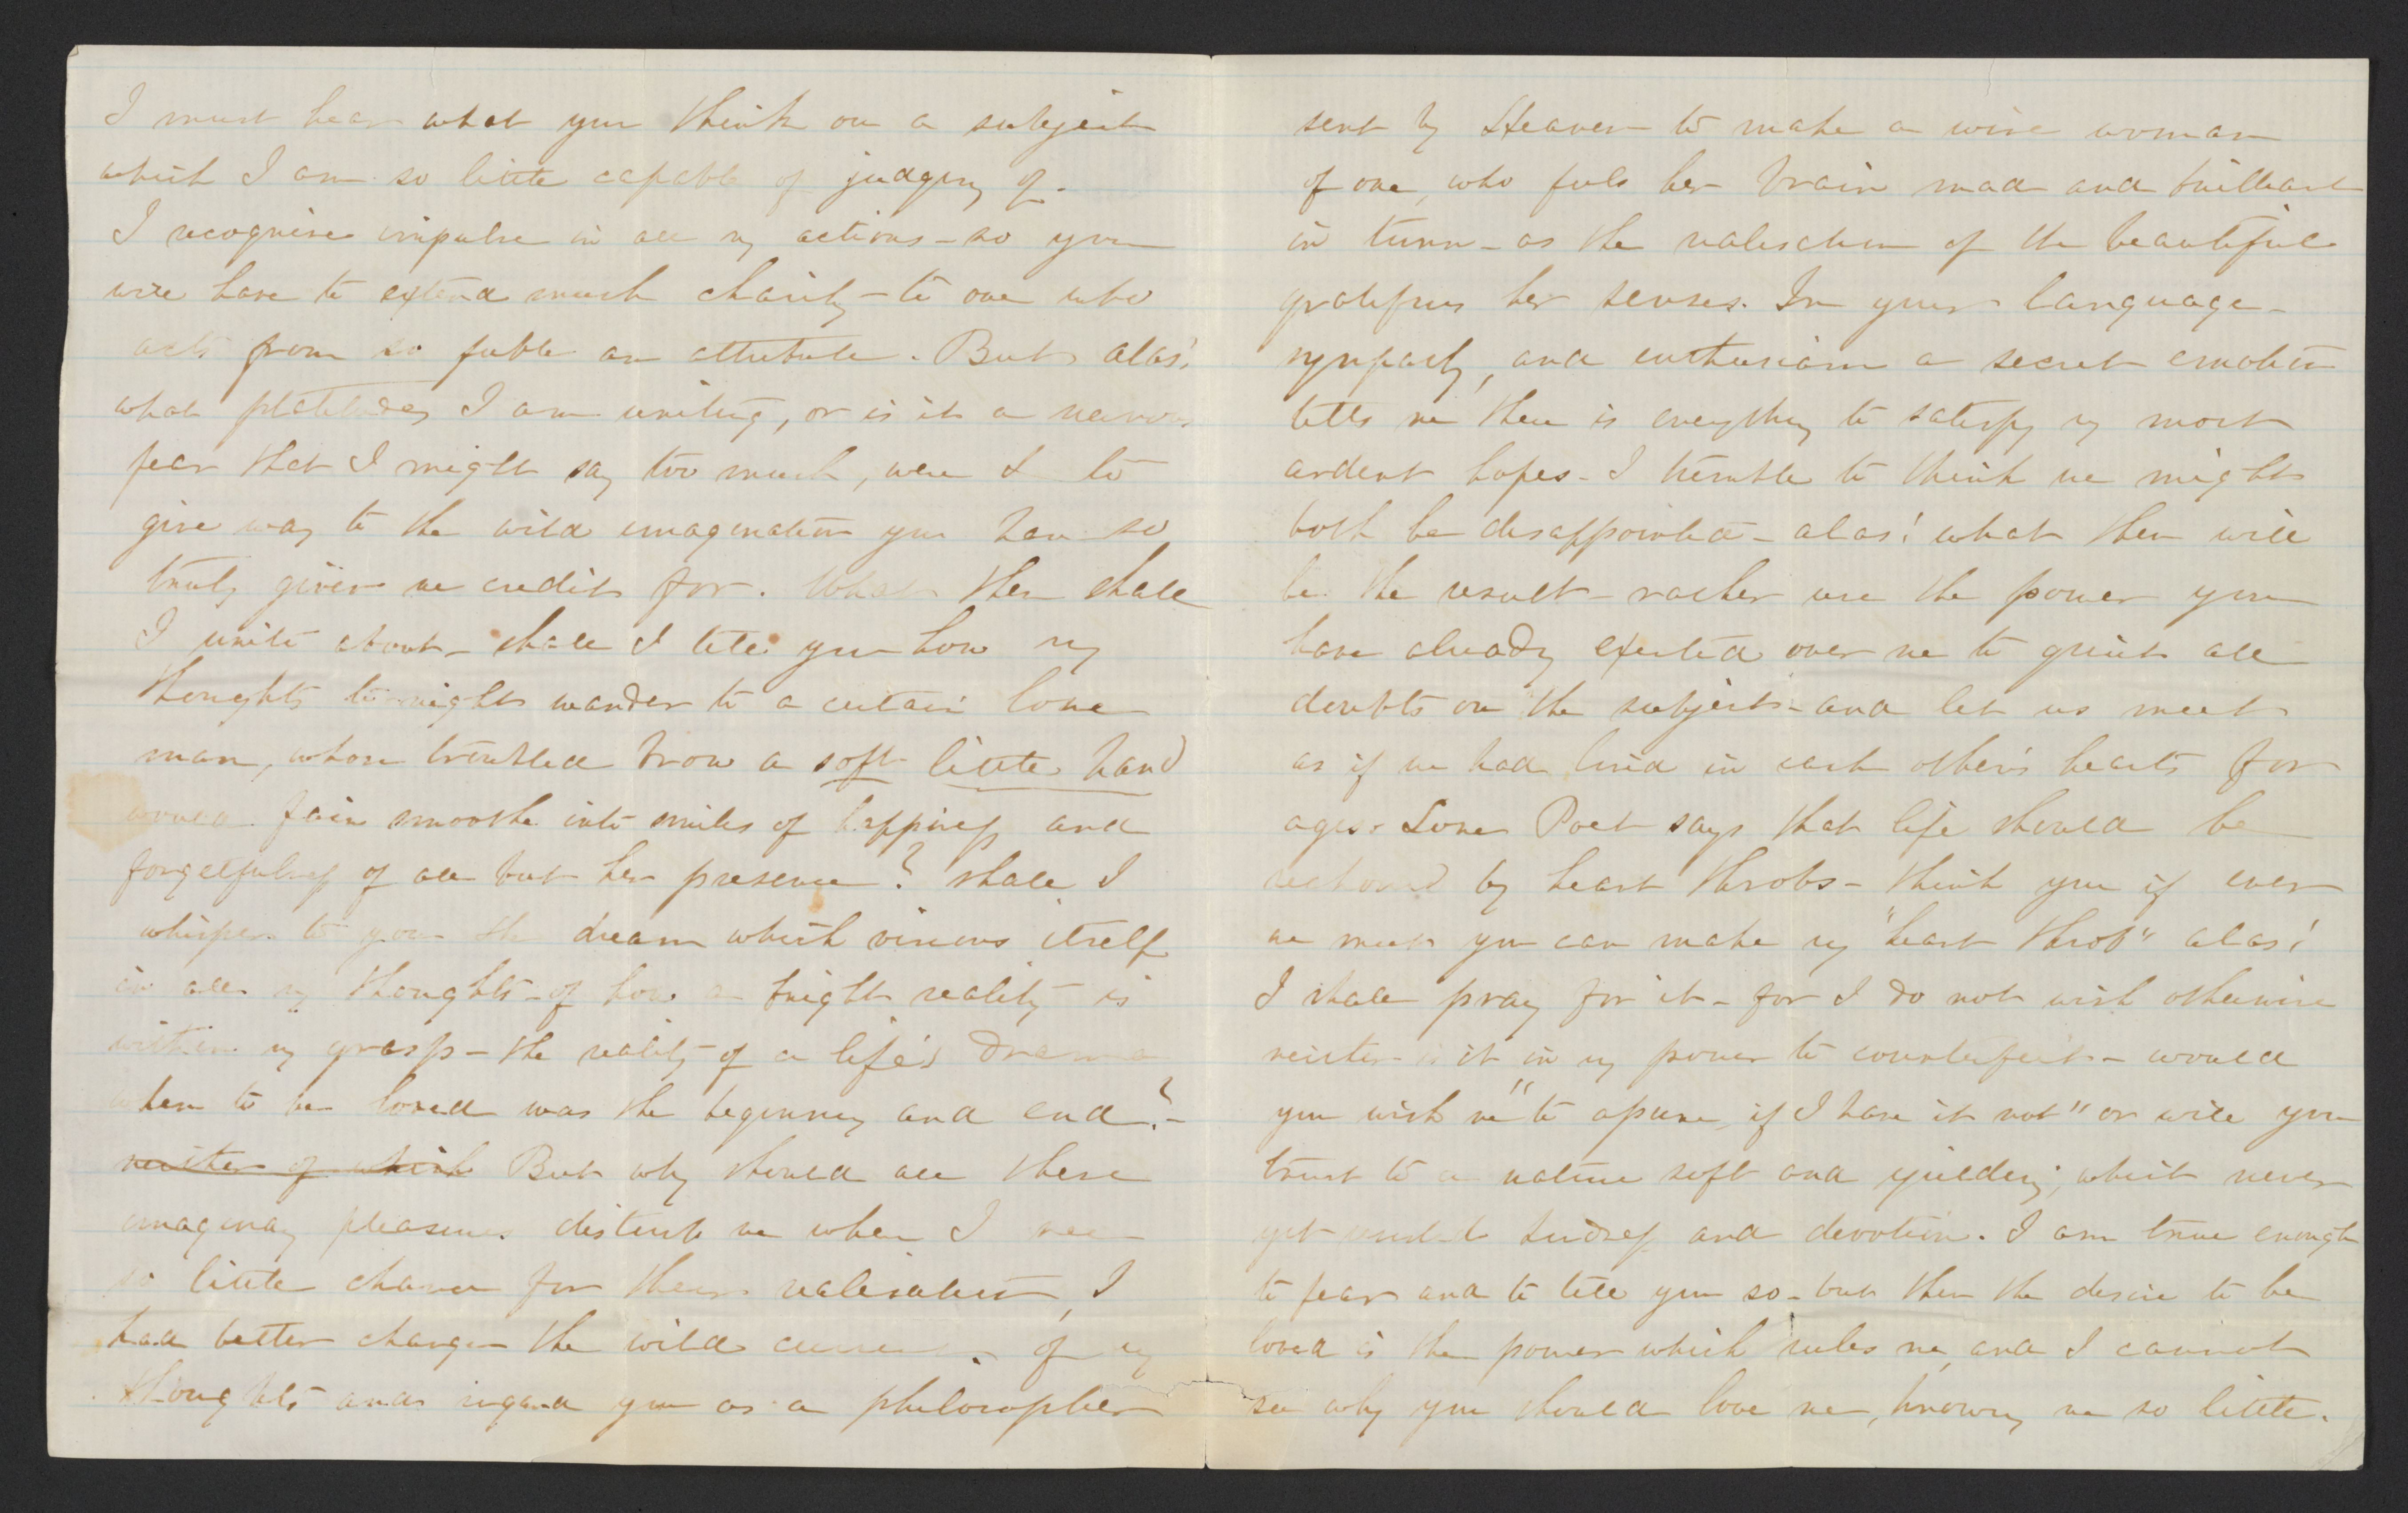 I must hear what you think on a subject
which I am so little capable of judging of.
I recognise impulse in all my actions - so you
will have to extend much charity - to one who
acts from so feeble an attribute. But alas!
what platitudes I am writing, or is it a nervous
fear that I might say too much, were I to
give way to the wild imagination you have so
truly given me credit for. What then shall
I write about - shall I tell you how my
thoughts to-night wander to a certain lone
man, whose troubled brow a soft little hand
would fain smoothe into smiles of happiness and
forgetfulness of all but her presence? shall I
whisper to you the dream which visions itself
in all my thoughts - of how a bright reality is
within my grasp - the reality of a life's drama
when to be loved was the beginning and end? -
neither of which But why should all these
imaginary pleasures disturb me when I see
so little chance for their realisation, I
had better change the wild current of my
thoughts and regard you as a philosopher
sent by Heaven to make a wise woman
of one, who feels her brain mad and brilliant
in turn - as the realisation of the beautiful
gratifies her senses. In your language -
sympathy, and enthusiasm a secret emotion
tells me there is everything to satisfy my most
ardent hopes - I tremble to think we might
both be disappointed - alas! what then will
be the result - rather use the power you
have already exerted over me to quiet all
doubts on the subject - and let us meet
as if we had lived in each other's hearts for
ages. Some Poet says that life should be
reckoned by heart throbs - think you if ever
we meet you can make my "heart throb" alas!
I shall pray for it - for I do not wish otherwise
neither is it in my power to counterfeit - would
you wish me "to assume, if I have it not" or will you
trust to a nature soft and yielding, which never
yet kindness and devotion. I am true enough
to fear and to tell you so - but then the desire to be
loved is the power which rules me, and I cannot
see why you should love me, knowing me so little.